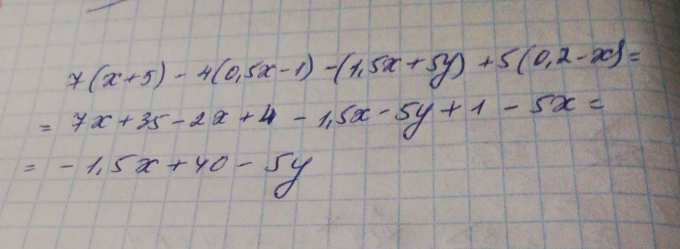 7(x+5) - 4(0,5x-1) - (1,5x+5y) + 5(0,2-x) =
= 7x+35-2x+4 - 1,5x-5y+1 - 5x =
= -1,5x+40-5y